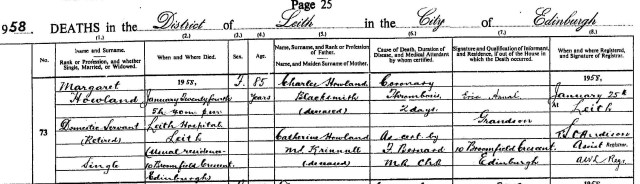 Page 25
1958. DEATHS in the District of Leith in the City of Edinburgh
(1.) (2.) (3.) (4.) (5.) (6.) (7.) (8.)
No.
Name and Surname.
Rank or Profession, and whether Single, Married, or Widowed.
When and Where Died.
Sex.
Age.
Name, Surname, and Rank or Profession of Father.
Name, and Maiden Surname of Mother.
Cause of Death, Duration of Disease, and Medical Attendant by whom certified.
Signature and Qualification of Informant, and Residence, if out of the House in which the Death occurred.
When and where Registered, and Signature of Registrar.
73
Margaret
Howland
Domestic Servant
(Retired)
Single
1958,
January Twenty fourth
5h. 40m. p.m.
Leith Hospital,
Leith
(usual residence
10 Broomfield Crescent,
Edinburgh)
F.
85
years
Charles Howland
Blacksmith
(deceased)
Catherine Howland
(deceased)
Coronary
Thrombosis,
2 days.
As cert. by
M.B. Ch.B
Grandson
10 Broomfield Crescent,
Edinburgh
1958,
January 25th
At Leith
Assist Registrar.